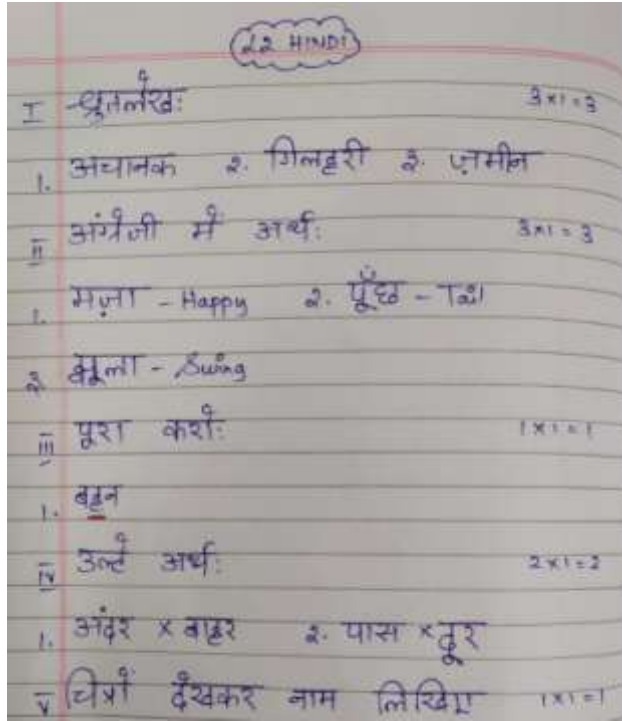 L2 HINDI
I श्रुतलेख: 3x1=3
1. अचानक 2. गिलहरी 3. ज़मीन
II अंग्रेजी में अर्थ: 3x1=3
1. मज़ा - Happy 2. पूँछ - Tail
3. झूला - Swing
III पूरा करो: 1x1=1
1. बहन
IV उल्टे अर्थ: 2x1=2
1. अंदर x बाहर 2. पास x दूर
V चित्रों देखकर नाम लिखिए 1x1=1